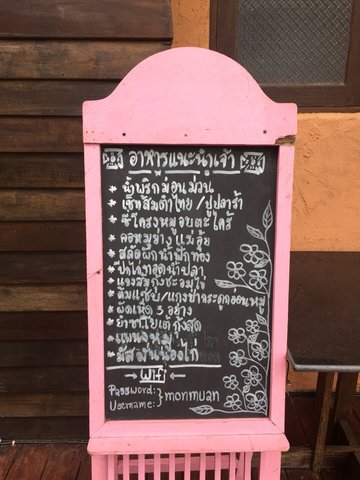 อาหารแนะนำเจ้า
* น้ำพริกม่อนม่วน
* เซ็ทส้มตำไทย/ปูปลาร้า
* ซี่โครงหมูอบตะไคร้
* คอหมูย่าง แม่อุ้ย
* สลัดผักน้ำฟักทอง
* ปีกไก่ทอดน้ำปลา
* แกงส้มกุ้งชะอมไข่
* ต้มแซ่บ/แกงป่ากระดูกอ่อนหมู
* ผัดเผ็ด 3 อย่าง
* ยำซาโยเต้กุ้งสด
* แพนงหมู
* มัสมั่นน่องไก่
→ Wifi ←
Password: } monmuan
Username: